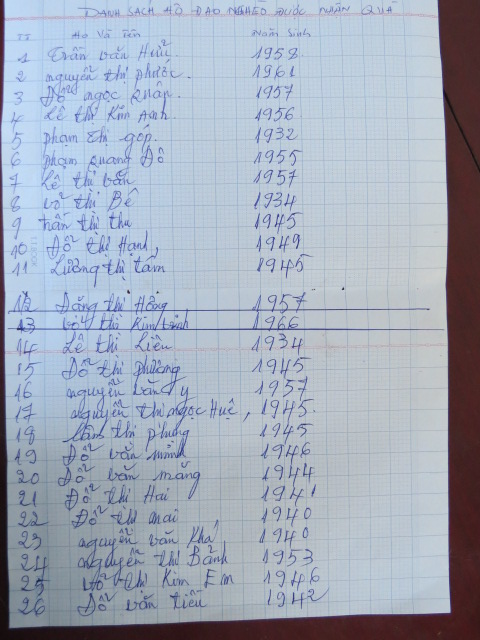 DANH SÁCH HỘ ĐẠO NGHÈO ĐƯỢC NHẬN QUÀ
TT Họ Và Tên Năm Sinh
1 Trần văn Hưu 1958
2 nguyễn thị phước 1961
3 Đỗ ngọc Quân 1957
4 Lê thị Kim Anh 1956
5 phạm thị góp 1932
6 phạm quang Đô 1955
7 Lê thị vân 1957
8 võ thị Bê 1934
9 trần thị thu 1945
10 Đỗ thị Hạnh, 1949
11 Lương thị tâm 1945
12 Đặng thị Hồng 1957
13 võ thị Kim 1966
14 Lê thị Liên 1934
15 Đỗ thị phương 1945
16 nguyễn văn y 1957
17 nguyễn thị ngọc Huệ, 1945
18 lâm thị phụng 1945
19 Đỗ văn minh 1946
20 Đỗ văn măng 1944
21 Đỗ thị Hai 1941
22 Đỗ thị mai 1940
23 nguyễn văn Khá 1940
24 nguyễn thị Bảnh 1953
25 võ thị Kim Em 1946
26 Đỗ văn tiều 1942